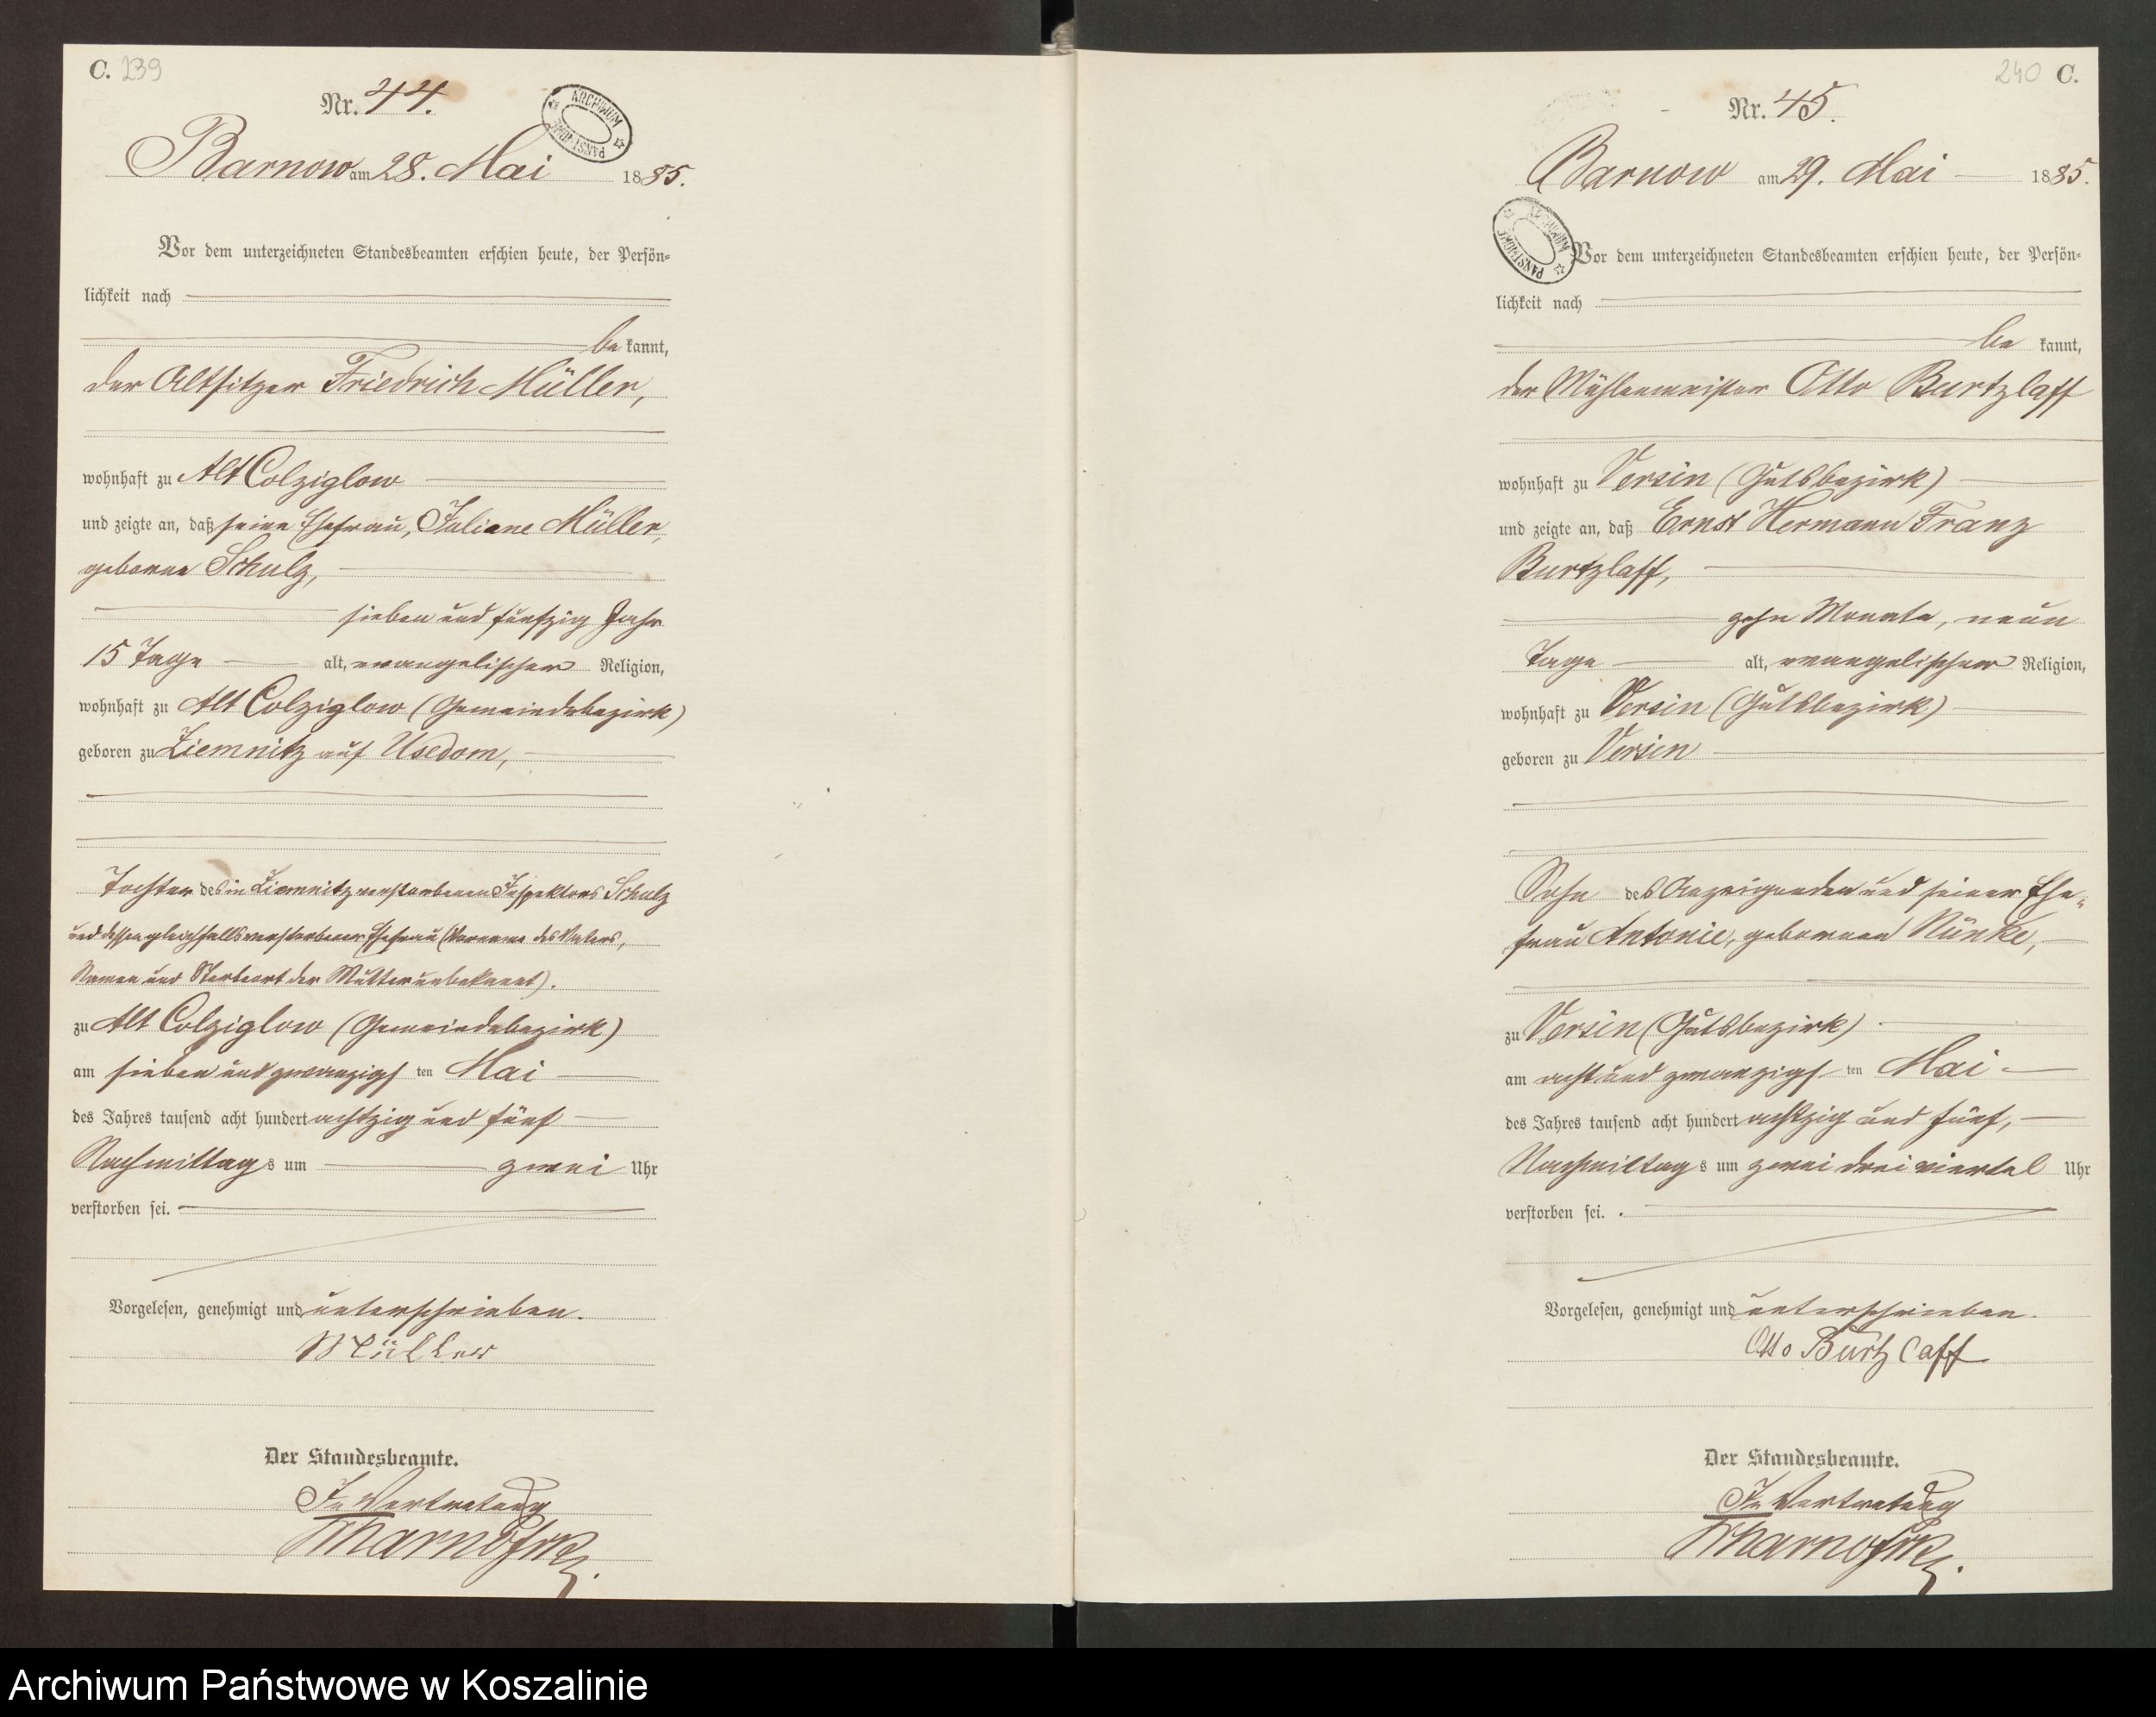 C. 239
Nr. 44.
ARCHIWUM PAŃSTWOWE
Barnow am 28. Mai 1885.
Vor dem unterzeichneten Standesbeamten erschien heute, der Persön=
lichkeit nach
be kannt,
der Altsitzer Friedrich Müller,
wohnhaft zu Alt Colziglow
und zeigte an, daß seine Ehefrau, Juliane Müller,
geborne Schulz,
sieben und fünfzig Jahr
15 Tage alt, evangelischer Religion,
wohnhaft zu Alt Colziglow (Gemeindebezirk)
geboren zu Ziemnitz auf Usedom,
Tochter des in Ziemnitz verstorbenen Inspektors Schulz
und dessen gleichfalls verstorbener Ehefrau (Vorname des Vaters,
Namen und Sterbeort der Mutter unbekannt).
zu Alt Colziglow (Gemeindebezirk)
am sieben und zwanzigs ten Mai
des Jahres tausend acht hundert achtzig und fünf
Nachmittag s um zwei Uhr
verstorben sei.
Vorgelesen, genehmigt und unterschrieben.
Müller
Der Standesbeamte.
In Vertretung
240 C.
Nr. 45.
Barnow am 29. Mai 1885.
ARCHIWUM PAŃSTWOWE
Vor dem unterzeichneten Standesbeamten erschien heute, der Persön=
lichkeit nach
be kannt,
der Mühlenmeister Otto Burtzlaff
wohnhaft zu Versin (Gutsbezirk)
und zeigte an, daß Ernst Hermann Franz
Burtzlaff,
zehn Monate, neun
Tage alt, evangelischer Religion,
wohnhaft zu Versin (Gutsbezirk)
geboren zu Versin
Sohn des Anzeigenden und seiner Ehe=
frau Antonie, gebornen Nünke,
zu Versin (Gutsbezirk)
am acht und zwanzigs ten Mai
des Jahres tausend acht hundert achtzig und fünf,
Nachmittag s um zwei drei viertel Uhr
verstorben sei.
Vorgelesen, genehmigt und unterschrieben.
Otto Burtzlaff
Der Standesbeamte.
In Vertretung
Archiwum Państwowe w Koszalinie